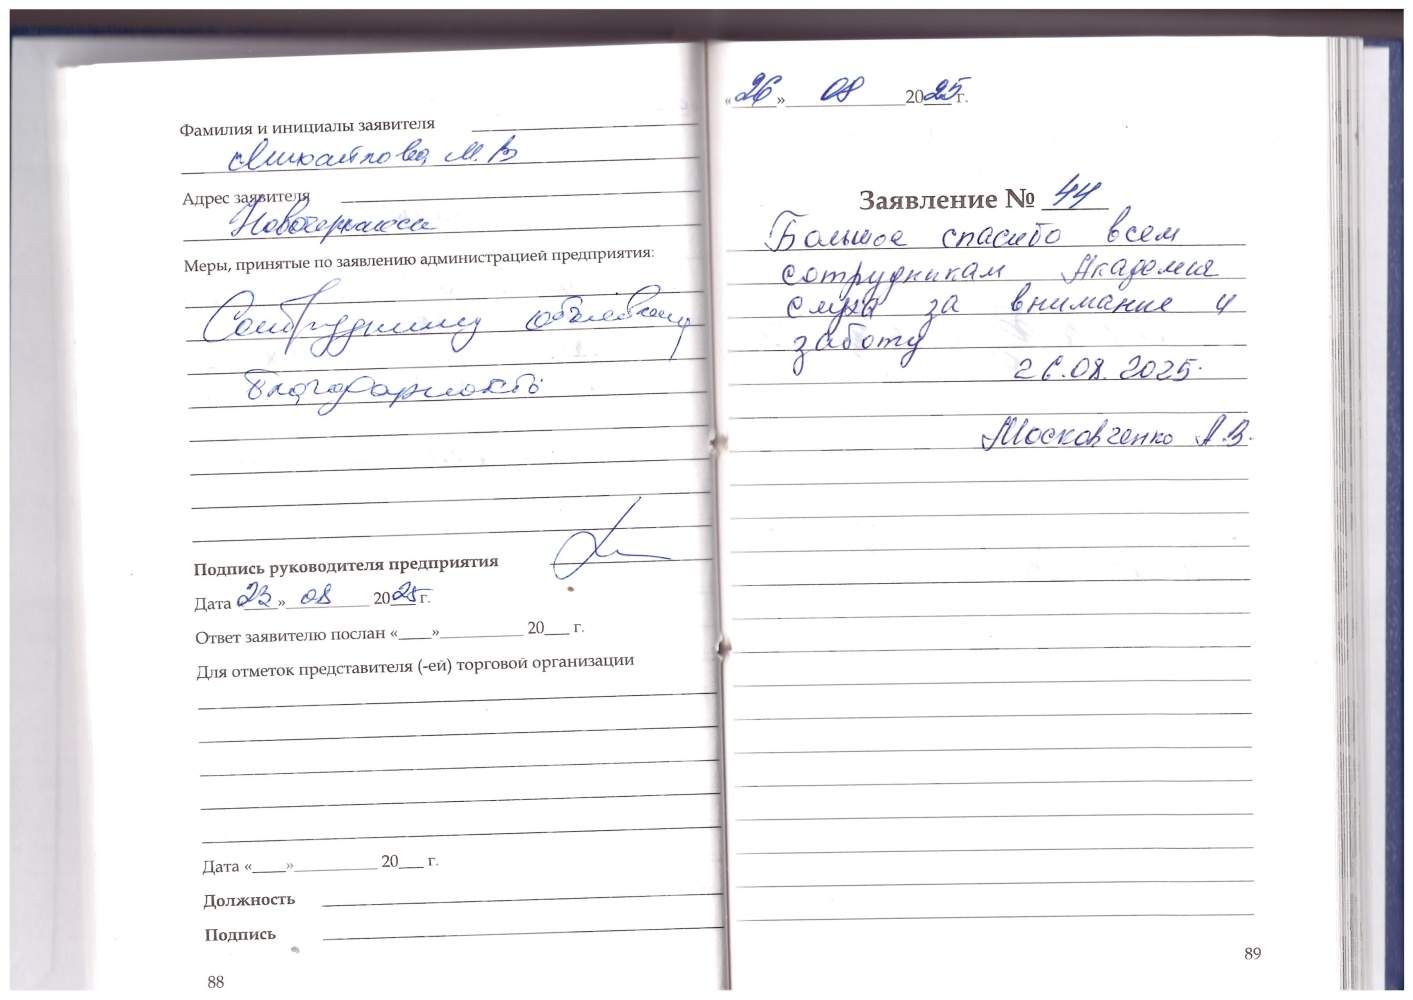 Фамилия и инициалы заявителя
Михайлова М.В
Адрес заявителя
Новочеркасск
Меры, принятые по заявлению администрацией предприятия:
Сотруднику объявлена
благодарность
Подпись руководителя предприятия
Дата «23» 08 2025 г.
Ответ заявителю послан «____»__________ 20___ г.
Для отметок представителя (-ей) торговой организации
Дата «____»__________ 20___ г.
Должность
Подпись
88
«26» 08 2025 г.
Заявление № 44
Большое спасибо всем
сотрудникам Академия
слуха за внимание и
заботу
26.08.2025.
Московченко А.В.
89